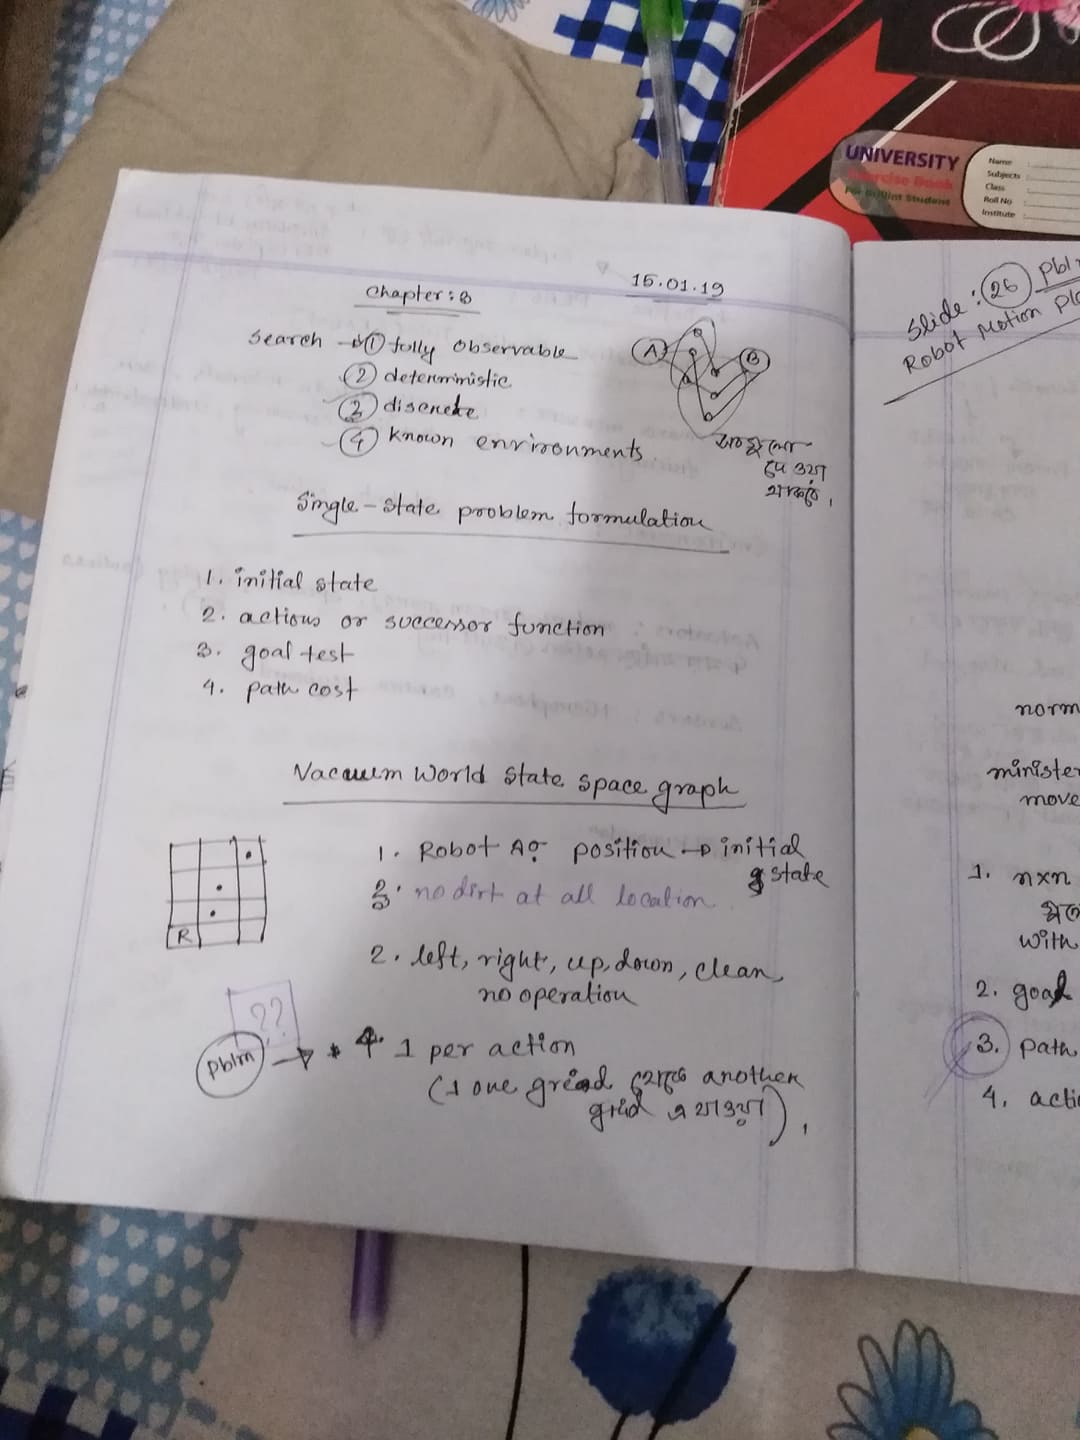 UNIVERSITY
Exercise Book
For Brilliant Student
Name
Subjects
Class
Roll No
Institute
15.01.19
Chapter: 3
Search → ① fully observable
② deterministic
③ discrete
④ known environments
A
B
থাকবে,
Single-state problem formulation
1. initial state
2. actions or successor function
3. goal test
4. path cost
Vacuum World State Space graph
1. Robot এর position → initial
state
3. no dirt at all location
R
2. left, right, up, down, clean,
no operation
??
pblm → 4. 1 per action
(1 one grid থেকে another
grid এ যাওয়া),
Slide: 26 pbl
Robot Motion Pl
norm
minister
move
1. nxn
with
2. goal
3. path
4. acti